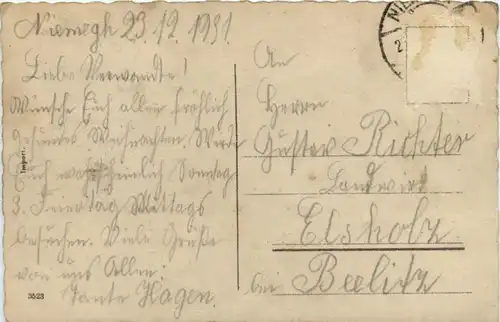 Niemegk 23.12.1931
Liebe Verwandte!
Wünsche Euch allen fröhlich
gesundes Weihnachten. Werde
Euch wahrscheinlich Sonntag
3. Feiertag Mittags
besuchen. Viele Grüße
von uns Allen:
Tante Hagen.
An
Herrn
Gustav Richter
Landwirt
Elsholz
bei Beelitz
Import.
3523
NIE